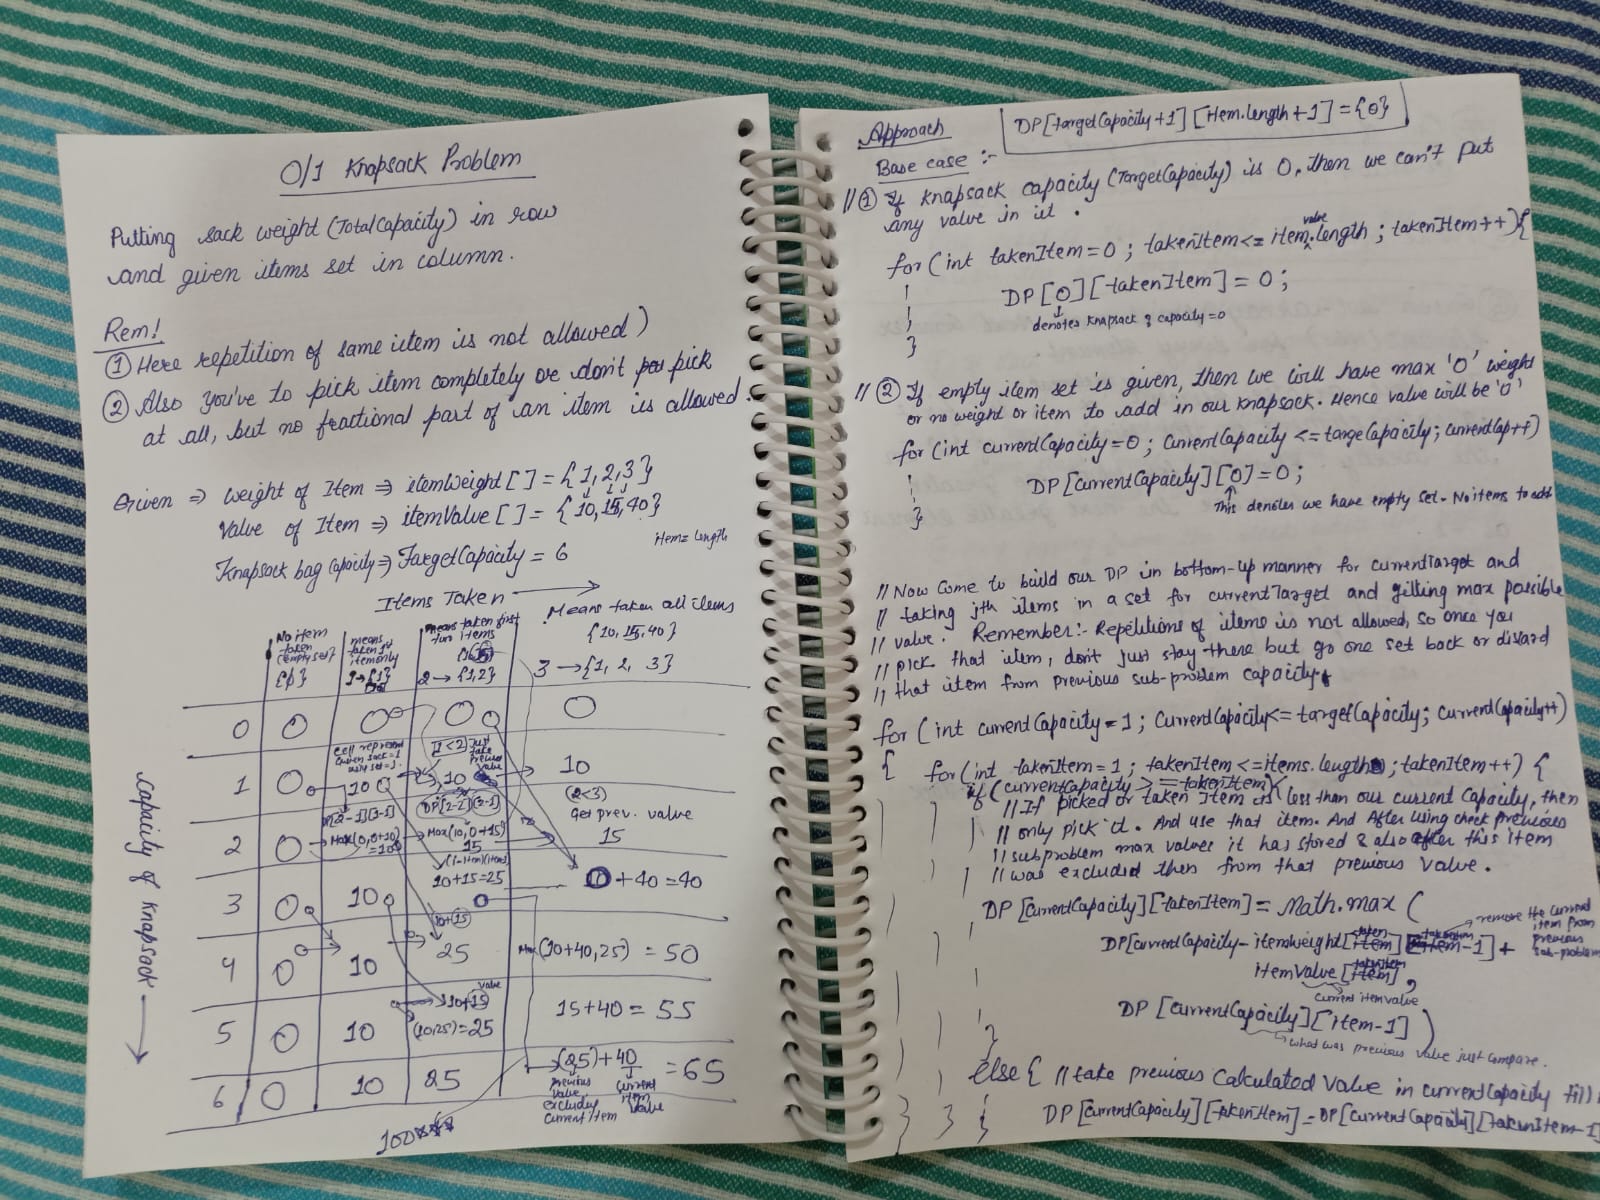 0/1 Knapsack Problem
Putting sack weight (Total Capacity) in row
and given items set in column.
Rem!
① Here repetition of same item is not allowed)
② Also you've to pick item completely or don't pick
at all, but no fractional part of an item is allowed.
Given ⇒ Weight of Item ⇒ itemWeight[] = {1,2,3}
Value of Item ⇒ itemValue[] = {10,15,40}
Knapsack bag Capacity ⇒ TargetCapacity = 6
item= length
Items Taken →
No item taken (empty set) {ϕ}
means taken 1st item only
means taken first two items
2 → {1,2}
Means taken all items
{10, 15, 40}
3 → {1, 2, 3}
Capacity of Knapsack →
0 0 0 0 0
1 0 10 10 10
(2<3)
Get prev. value
2 0 Max(0,0+10) =10 Max(10,0+15) 15 15
3 0 10 10+15=25 +40=40
4 0 10 25 Max(10+40,25) = 50
5 0 10 (10,25)=25 15+40 = 55
6 0 10 25 (25)+40 = 65
previous value excluding current item
current item value
Approach
DP[targetCapacity+1][item.length+1]={0}
Base case :-
//① If knapsack capacity (TargetCapacity) is 0, then we can't put
any value in it.
for(int takenItem=0; takenItem<= item value.length; takenItem++){
DP[0][takenItem]=0;
denotes knapsack of capacity=0
}
//② If empty item set is given, then we will have max '0' weight
or no weight or item to add in our knapsack. Hence value will be '0'
for(int currentCapacity=0; currentCapacity <=targeCapacity; currentCap++)
DP[currentCapacity][0]=0;
This denotes we have empty set. No items to add
}
//Now come to build our DP in bottom-up manner for currentTarget and
// taking jth items in a set for currentTarget and getting max possible
// value. Remember:- Repetitions of items is not allowed, so once you
// pick that item, don't just stay there but go one set back or discard
// that item from previous sub-problem capacity.
for(int currentCapacity=1; currentCapacity<=targetCapacity; currentCapacity++)
{ for(int takenItem=1; takenItem<=items.length; takenItem++) {
if(currentCapacity >= takenItem){
//If picked or taken Item is less than our current Capacity, then
// only pick it. And use that item. And After using check previous
// subproblem max values it has stored & also after this item
// was excluded then from that previous value.
DP[currentCapacity][takenItem]= Math.max(
DP[currentCapacity-itemsWeight[taken item][takenItem-1] +
remove the current item from previous sub-problem
itemValue[takenItem],
current item value
DP[currentCapacity][item-1])
what was previous value just compare.
}
else{ //take previous calculated value in currentCapacity fill
DP[currentCapacity][takenItem]=DP[currentCapacity][takenItem-1]
} } }